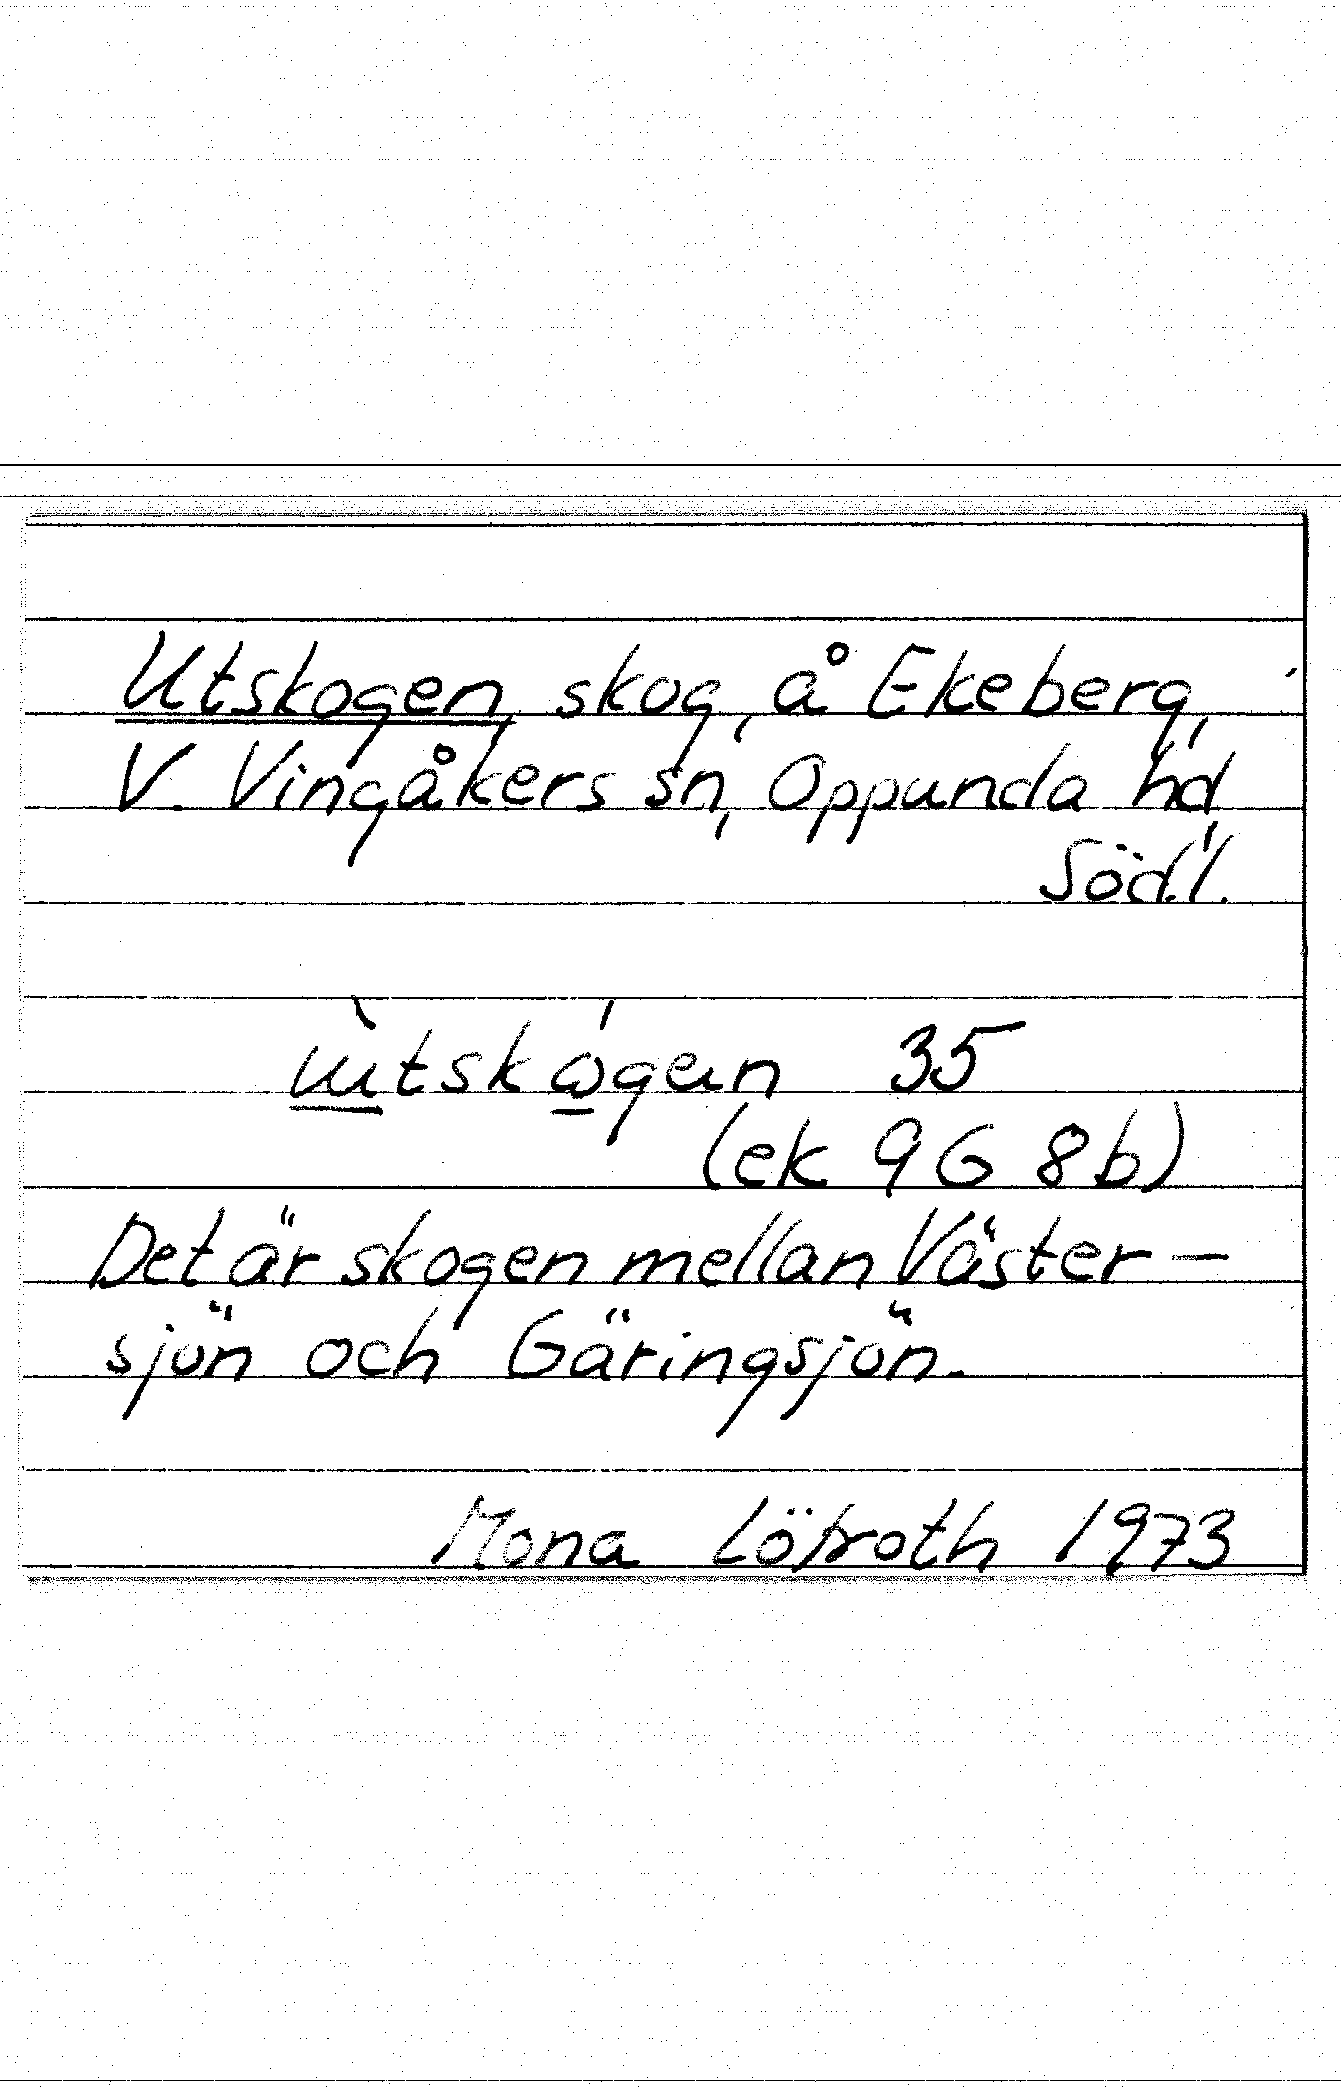 Utskogen, skog, å Ekeberg,
V. Vingåkers sn, Oppunda hd,
Södl.
ùtskógen 35
(ek 9G 8b)
Det är skogen mellan Väster-
sjön och Gäringsjön.
Mona Löfroth 1973